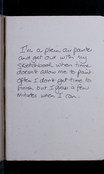 I'm a plein air painter
and get out with my
sketchbook when time
doesn't allow me to paint
often I don't get time to
finish but I grab a few
minutes when I can.